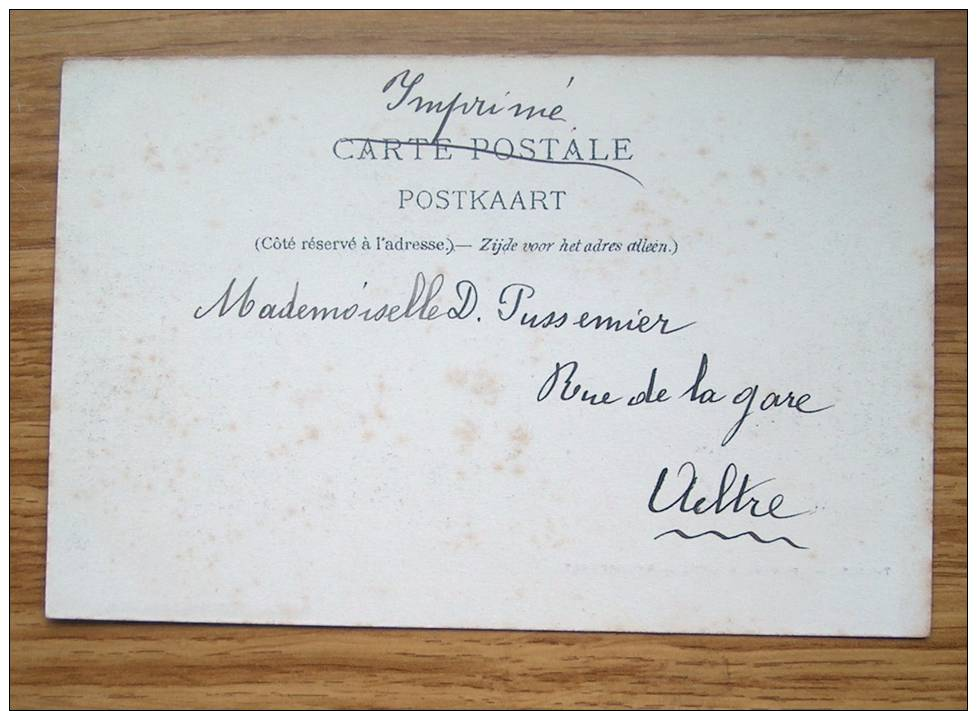 Imprimé
CARTE POSTALE
POSTKAART
(Côté réservé à l'adresse.)— Zijde voor het adres alleen.)
Mademoiselle D. Pussemier
Rue de la gare
Aeltre